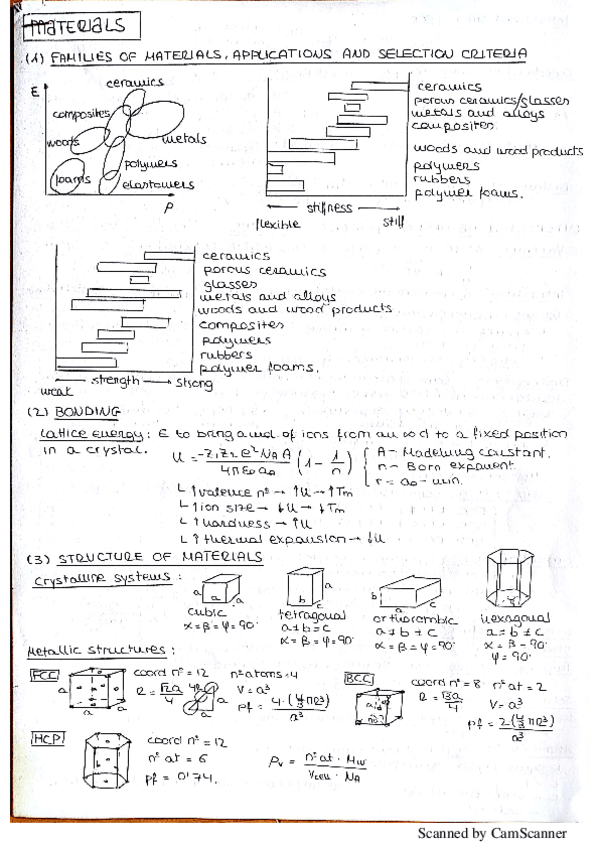 MATERIALS
(1) FAMILIES OF MATERIALS, APPLICATIONS AND SELECTION CRITERIA
E
ceramics
composites
woods
metals
foams
polymers
elastomers
ρ
ceramics
porous ceramics/glasses
metals and alloys
composites
woods and wood products
polymers
rubbers
polymer foams.
stiffness
flexible stiff
ceramics
porous ceramics
glasses
metals and alloys
woods and wood products
composites
polymers
rubbers
polymer foams.
← strength → strong
weak
(2) BONDING
Lattice energy: E to bring a mol of ions from an ∞ d to a fixed position
in a crystal. U = -Z₁Z₂e²NAA / 4πε₀a₀ (1 - 1/n)
A - Madelung constant.
n - Born exponent
r = a₀ - min.
↑ valence nº → ↑U → ↑Tm
↑ ion size → ↓U → ↓Tm
↑ hardness → ↑U
↑ thermal expansion → ↓U
(3) STRUCTURE OF MATERIALS
Crystalline systems:
cubic
α = β = φ = 90º
tetragonal
a ≠ b = c
α = β = φ = 90º
orthorombic
a ≠ b ≠ c
α = β = φ = 90º
Hexagonal
a = b ≠ c
α = β = 90º
φ = 90º
Metallic structures:
FCC
coord nº = 12
R = √2a/4
nº atoms = 4
V = a³
pf = 4·(4/3 πR³)/a³
BCC
coord nº = 8
R = √3a/4
nº at = 2
V = a³
pf = 2(4/3 πR³)/a³
HCP
coord nº = 12
nº at = 6
pf = 0'74.
ρv = nº at · Mw / Vcell · NA
Scanned by CamScanner